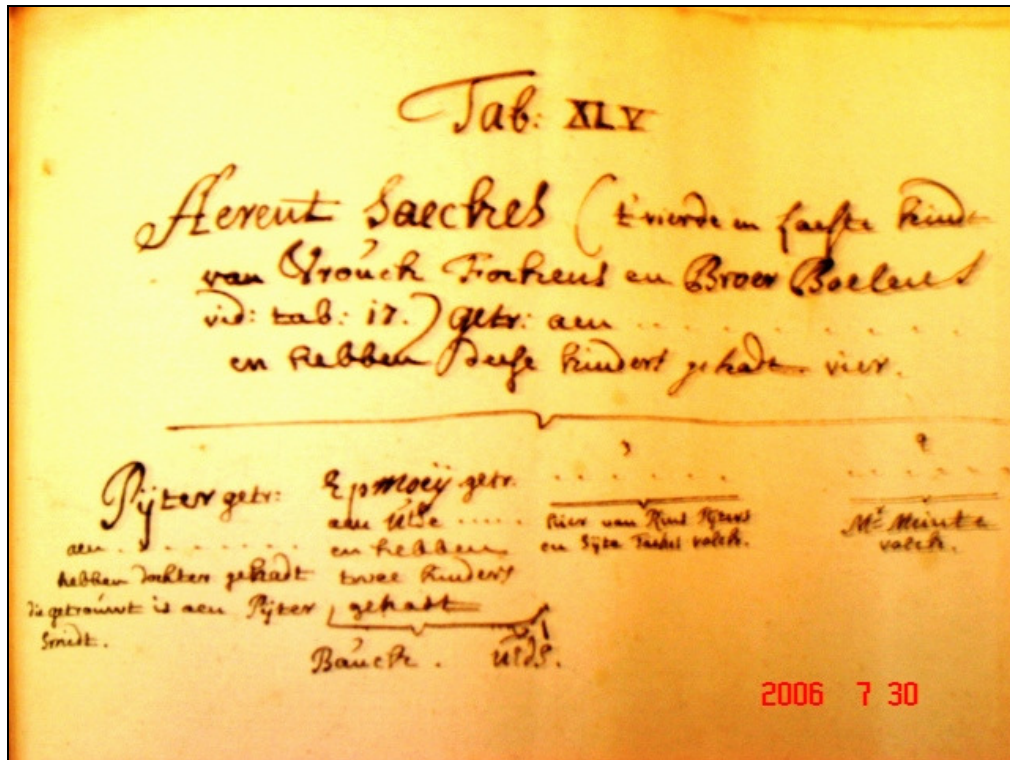 Tab: XLV
Aerent Saeckes (t'vierde en laeste kindt
van Vrouck Fockens en Broer Boelens
vid: tab: 17.) getr: aen . . . . . . . . . .
en hebben deese kinders gehadt vier.
Pijter getr:
aen . . . . . . . .
hebben dochter gehadt
die getrouwt is aen Pijter
Smidt.
Epmoeij getr.
aen Ulse . . . . .
en hebben
twee kinders
gehadt
Bauck . Ulds.
3
. . . . . . .
hier van Rins Pijters
en Sijtse volck.
. . . . . . .
Mr. Meinte
volck.
2006 7 30